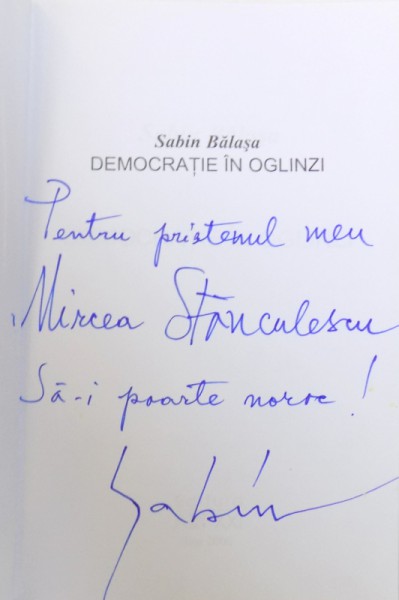 Sabin Bălaşa
DEMOCRAŢIE ÎN OGLINZI
Pentru prietenul meu
Mircea Stănculescu
Să-i poarte noroc!
Sabin